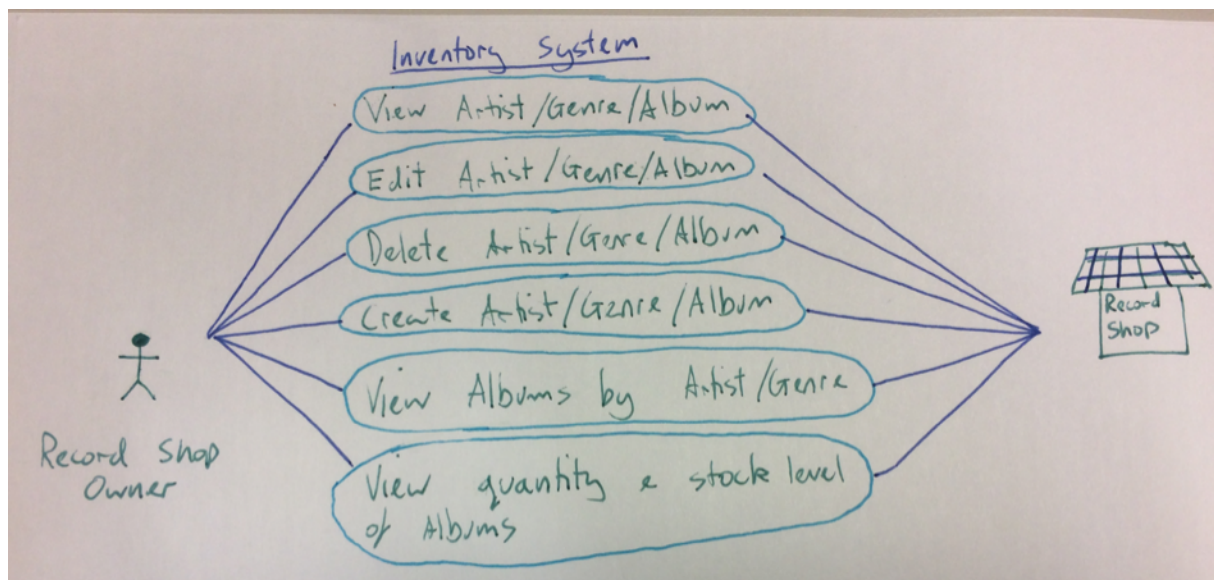 Inventory System
View Artist/Genre/Album
Edit Artist/Genre/Album
Delete Artist/Genre/Album
Create Artist/Genre/Album
View Albums by Artist/Genre
View quantity & stock level
of Albums
Record Shop
Owner
Record
Shop